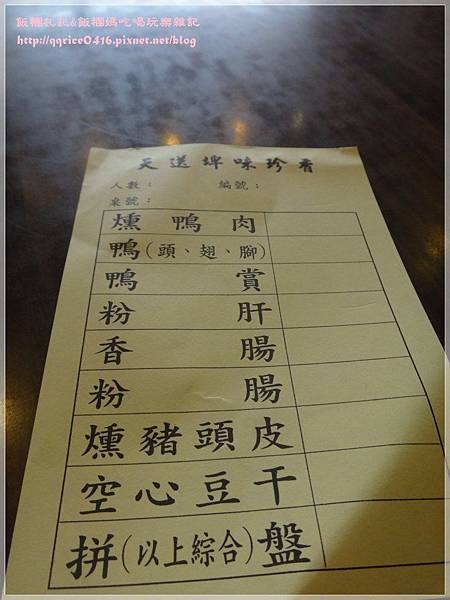 飯糰札記&飯糰媽吃喝玩樂雜記
http://qqrice0416.pixnet.net/blog
天送埤味珍香
人數： 編號：
桌號：
燻鴨肉
鴨(頭、翅、腳)
鴨賞
粉肝
香腸
粉腸
燻豬頭皮
空心豆干
拼(以上綜合)盤